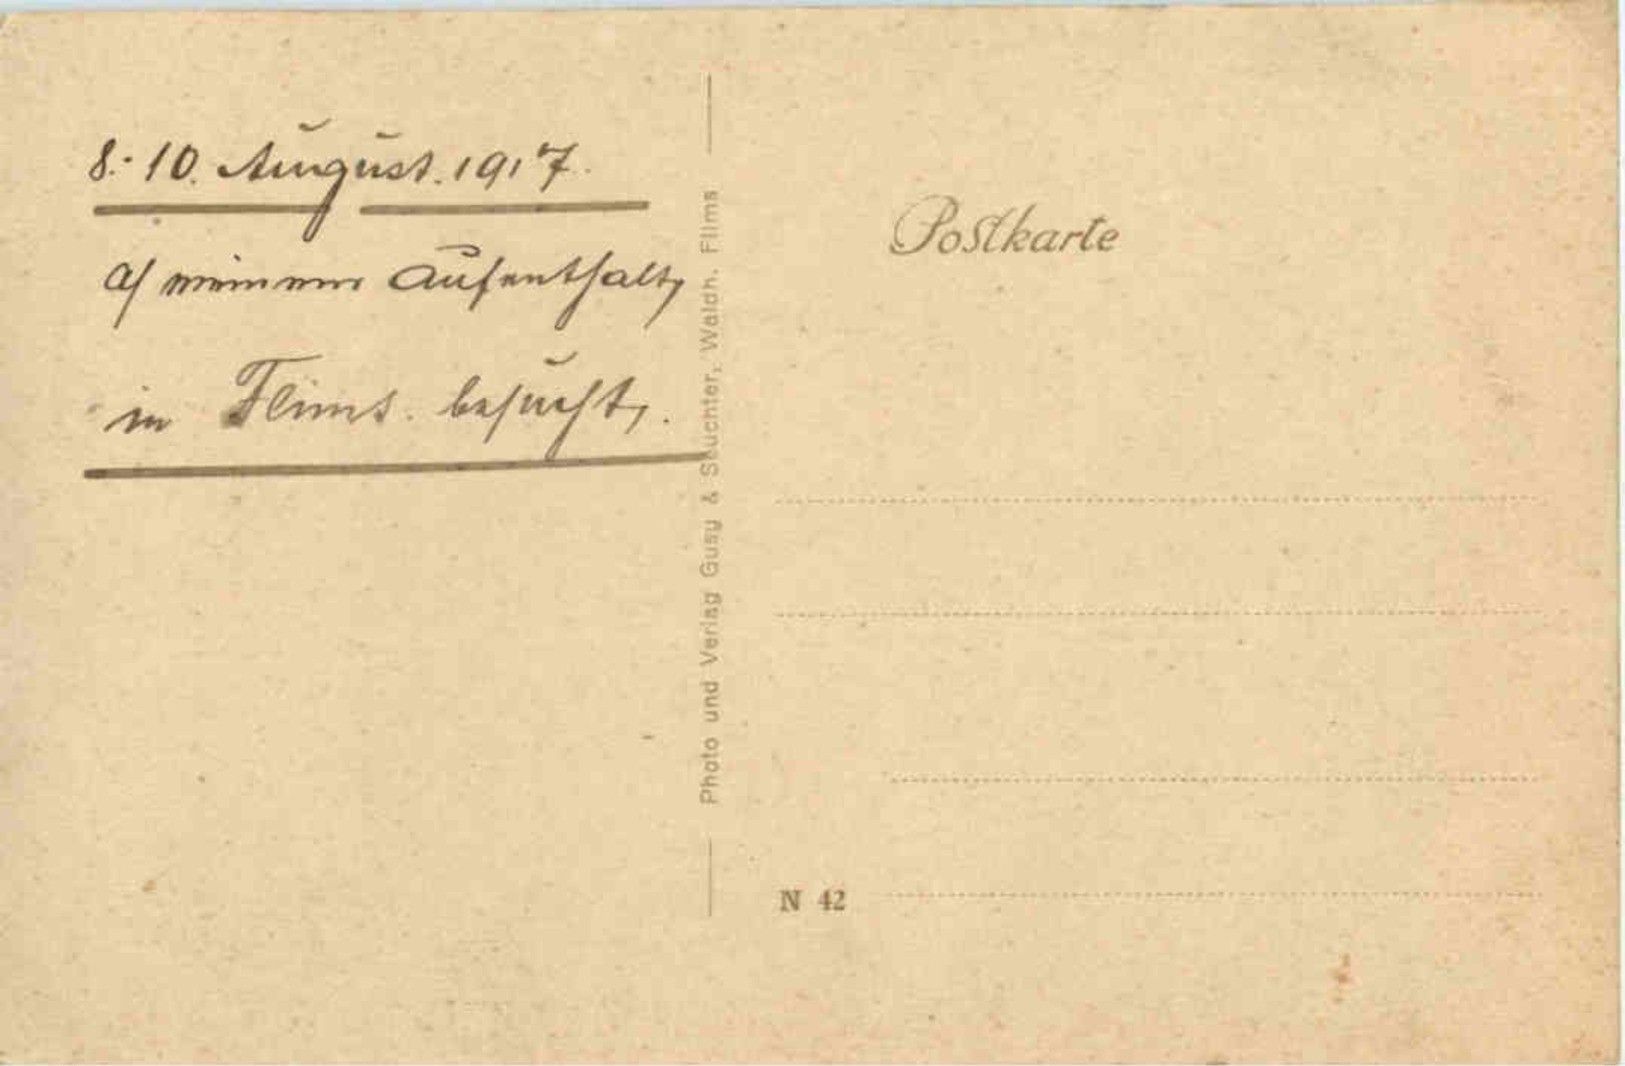 8.-10. August. 1917.
a/ meinem Aufenthalt,
in Flims. besucht,.
Photo und Verlag Gusy & Stuchter, Waldh. Flims
Postkarte
N 42